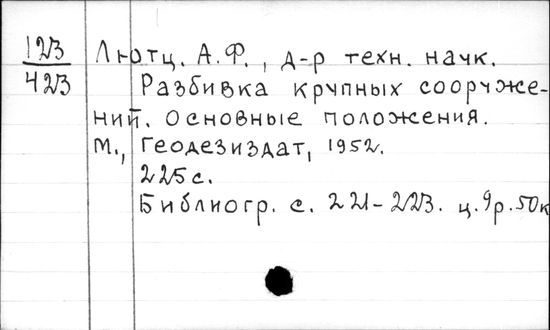 123
423
Лютц. А.Ф., д-р техн. наук.
Разбивка крупных сооруже-
ний. Основные положения.
М., Геодезиздат, 1952.
225с.
Библиогр. с. 221-223. ц.9р.50к